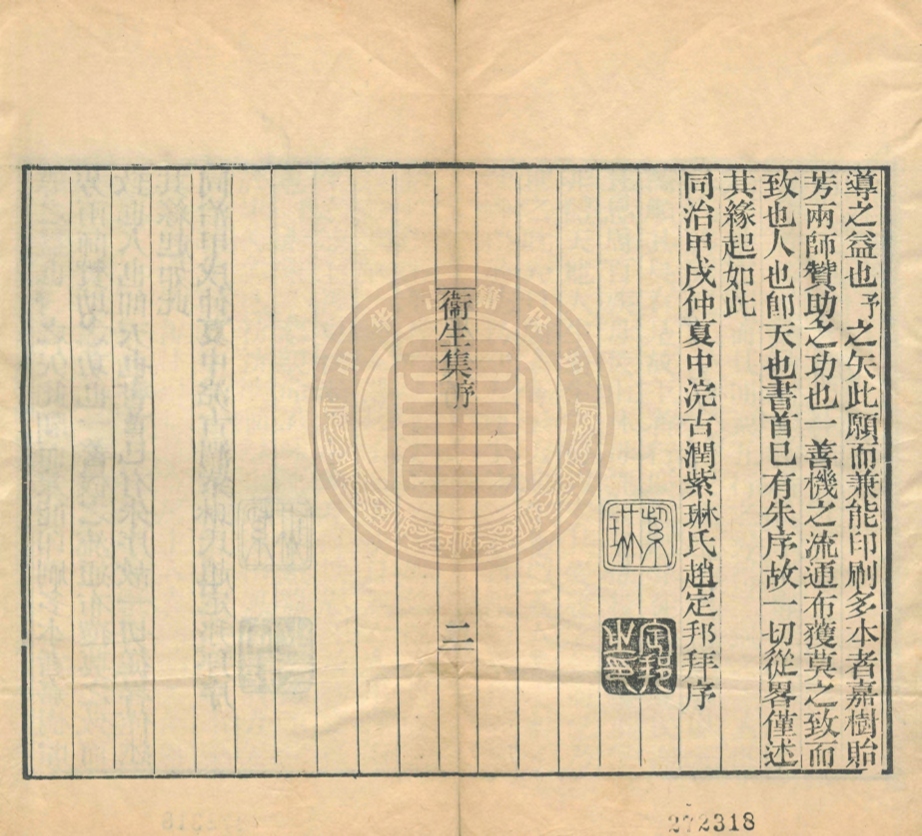 導之益也予之矢此願而兼能印刷多本者嘉樹貽
芳兩師贊助之功也一善機之流通布獲莫之致而
致也人也卽天也書首已有朱序故一切從畧僅述
其緣起如此
同治甲戌仲夏中浣古潤紫琳氏趙定邦拜序
紫琳
定邦之印
衞生集序
二
中华古籍保护
272318